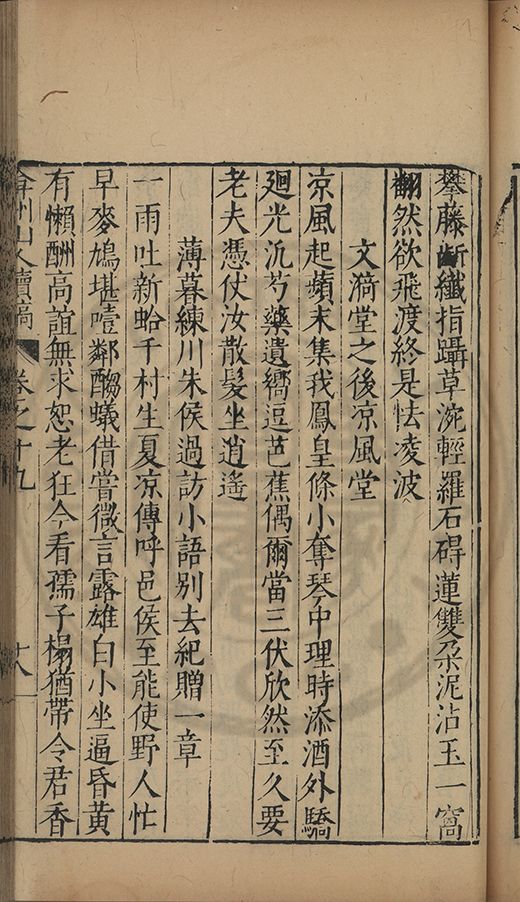 攀藤斷纖指躡草涴輕羅石碍蓮雙朶泥沾玉一窩
翻然欲飛渡終是怯凌波
文漪堂之後凉風堂
凉風起蘋末集我鳳皇條小奪琴中理時添酒外驕
廻光汎芍藥遺嚮逗芭蕉偶爾當三伏欣然至久要
老夫憑仗汝散髮坐逍遙
薄暮練川朱侯過訪小語别去紀贈一章
一雨吐新蛤千村生夏凉傳呼邑侯至能使野人忙
早麥鳩堪噎鄰醪蟻借嘗微言露雄白小坐逼昏黃
有懶酬高誼無求恕老狂今看孺子榻猶帶令君香
弇州山人續稿 卷之十九 十八